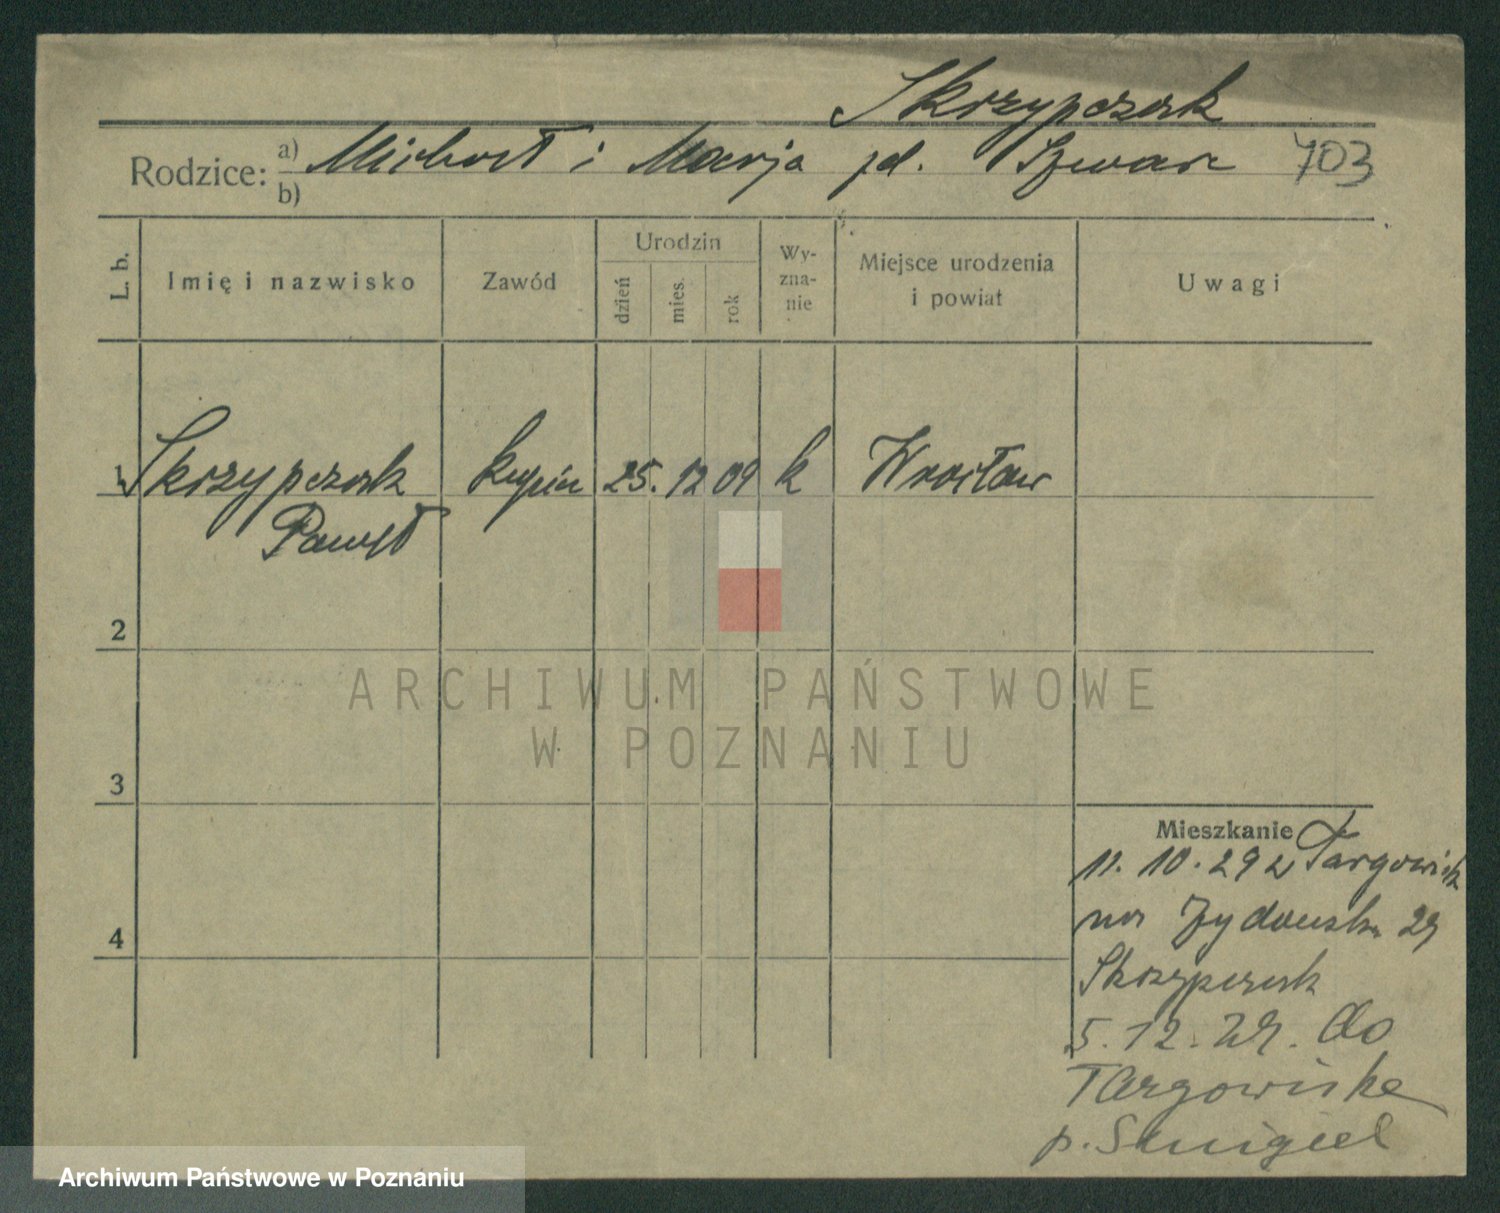 Skrzypczak
Rodzice: a) Michał i Marja zd. Szwarc 703
b)
L. b.
Imię i nazwisko
Zawód
Urodzin
dzień
mies.
rok
Wy-
zna-
nie
Miejsce urodzenia
i powiat
Uwagi
1 Skrzypczak kupiec 25. 12 09 k Wrocław
Paweł
2
ARCHIWUM PAŃSTWOWE
W POZNANIU
3
Mieszkanie
11. 10. 29 z Targowisk
na Żydowska 29
Skrzypczak
5. 12. 29. do
Targowiska
p. Smigiel
4
Archiwum Państwowe w Poznaniu